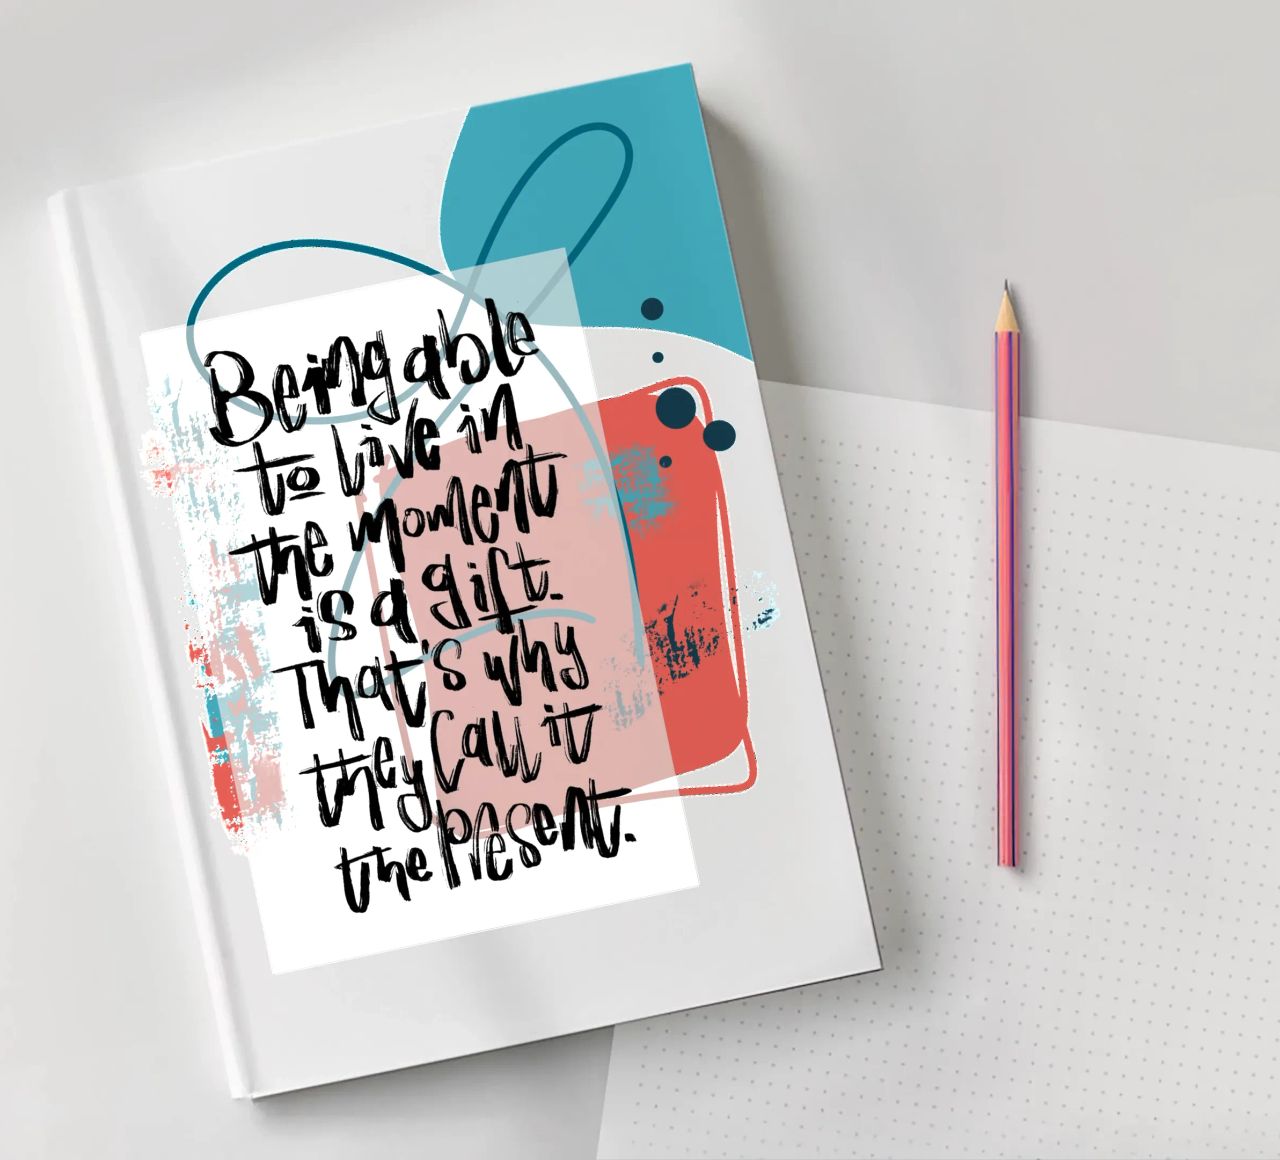 Being able
to live in
the moment
is a gift.
That's why
they call it
the present.